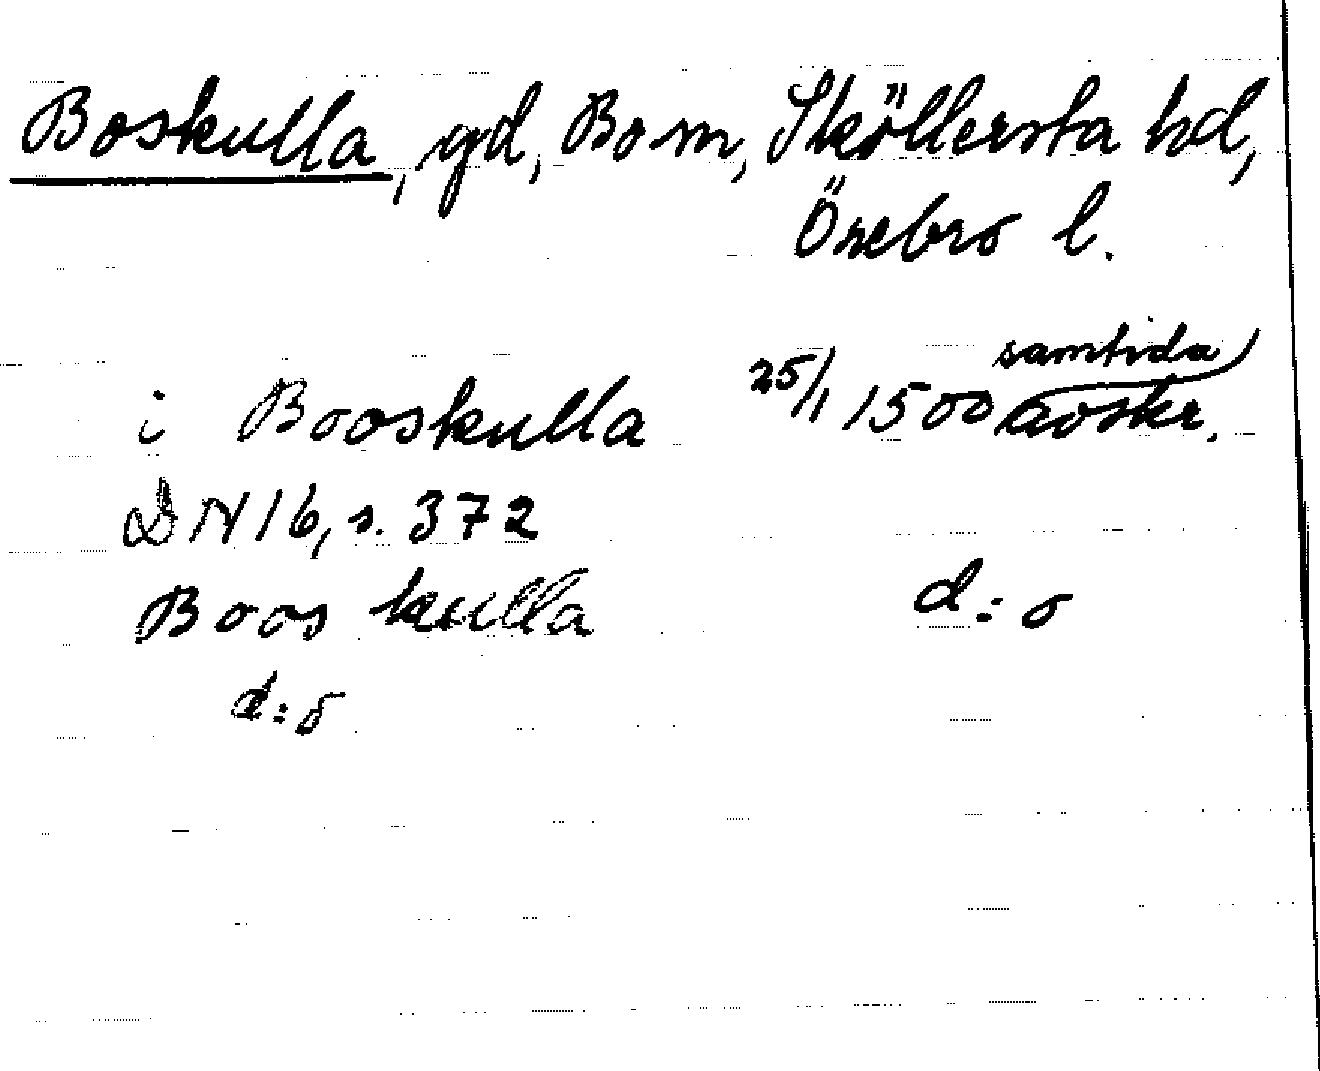 Boskulla, gd, Bo sn, Sköllersta hd,
Örebro l.
i Booskulla 25/1 1500 samtida avskr.
DN 16, s. 372
Boos kulla d:o
d:o